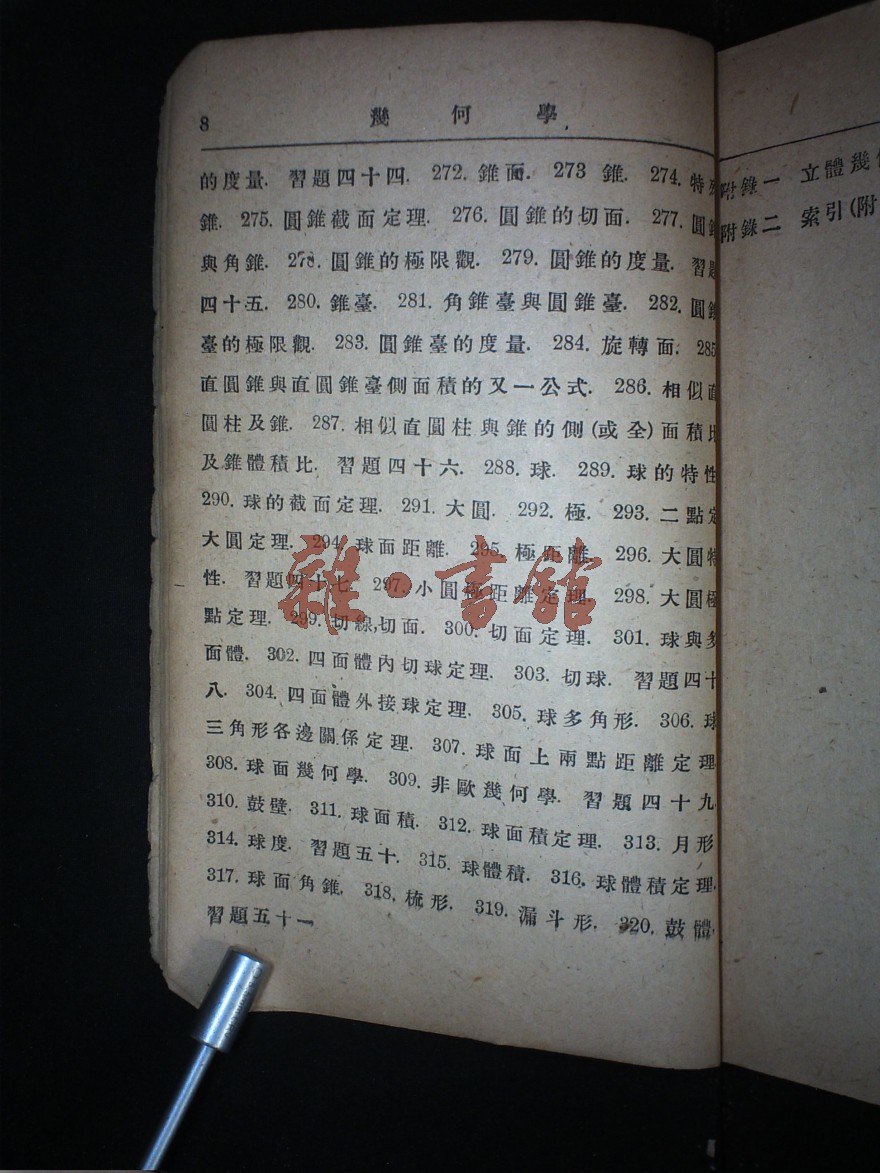 8 幾何學
的度量. 習題四十四. 272. 錐面. 273 錐. 274. 特殊
錐. 275. 圓錐截面定理. 276. 圓錐的切面. 277. 圓錐
與角錐. 278. 圓錐的極限觀. 279. 圓錐的度量. 習題
四十五. 280. 錐臺. 281. 角錐臺與圓錐臺. 282. 圓錐
臺的極限觀. 283. 圓錐臺的度量. 284. 旋轉面. 285
直圓錐與直圓錐臺側面積的又一公式. 286. 相似直
圓柱及錐. 287. 相似直圓柱與錐的側(或全)面積比
及錐體積比. 習題四十六. 288. 球. 289. 球的特性
290. 球的截面定理. 291. 大圓. 292. 極. 293. 二點定
大圓定理. 294. 球面距離. 295. 極距離. 296. 大圓特
性. 習題四十七. 297. 小圓極距離定理. 298. 大圓極
點定理. 299. 切線,切面. 300. 切面定理. 301. 球與多
面體. 302. 四面體內切球定理. 303. 切球. 習題四十
八. 304. 四面體外接球定理. 305. 球多角形. 306. 球
三角形各邊關係定理. 307. 球面上兩點距離定理
308. 球面幾何學. 309. 非歐幾何學. 習題四十九
310. 鼓壁. 311. 球面積. 312. 球面積定理. 313. 月形
314. 球度. 習題五十. 315. 球體積. 316. 球體積定理.
317. 球面角錐. 318. 梳形. 319. 漏斗形. 320. 鼓體.
習題五十一
附錄一 立體幾
附錄二 索引(附
雜·書館